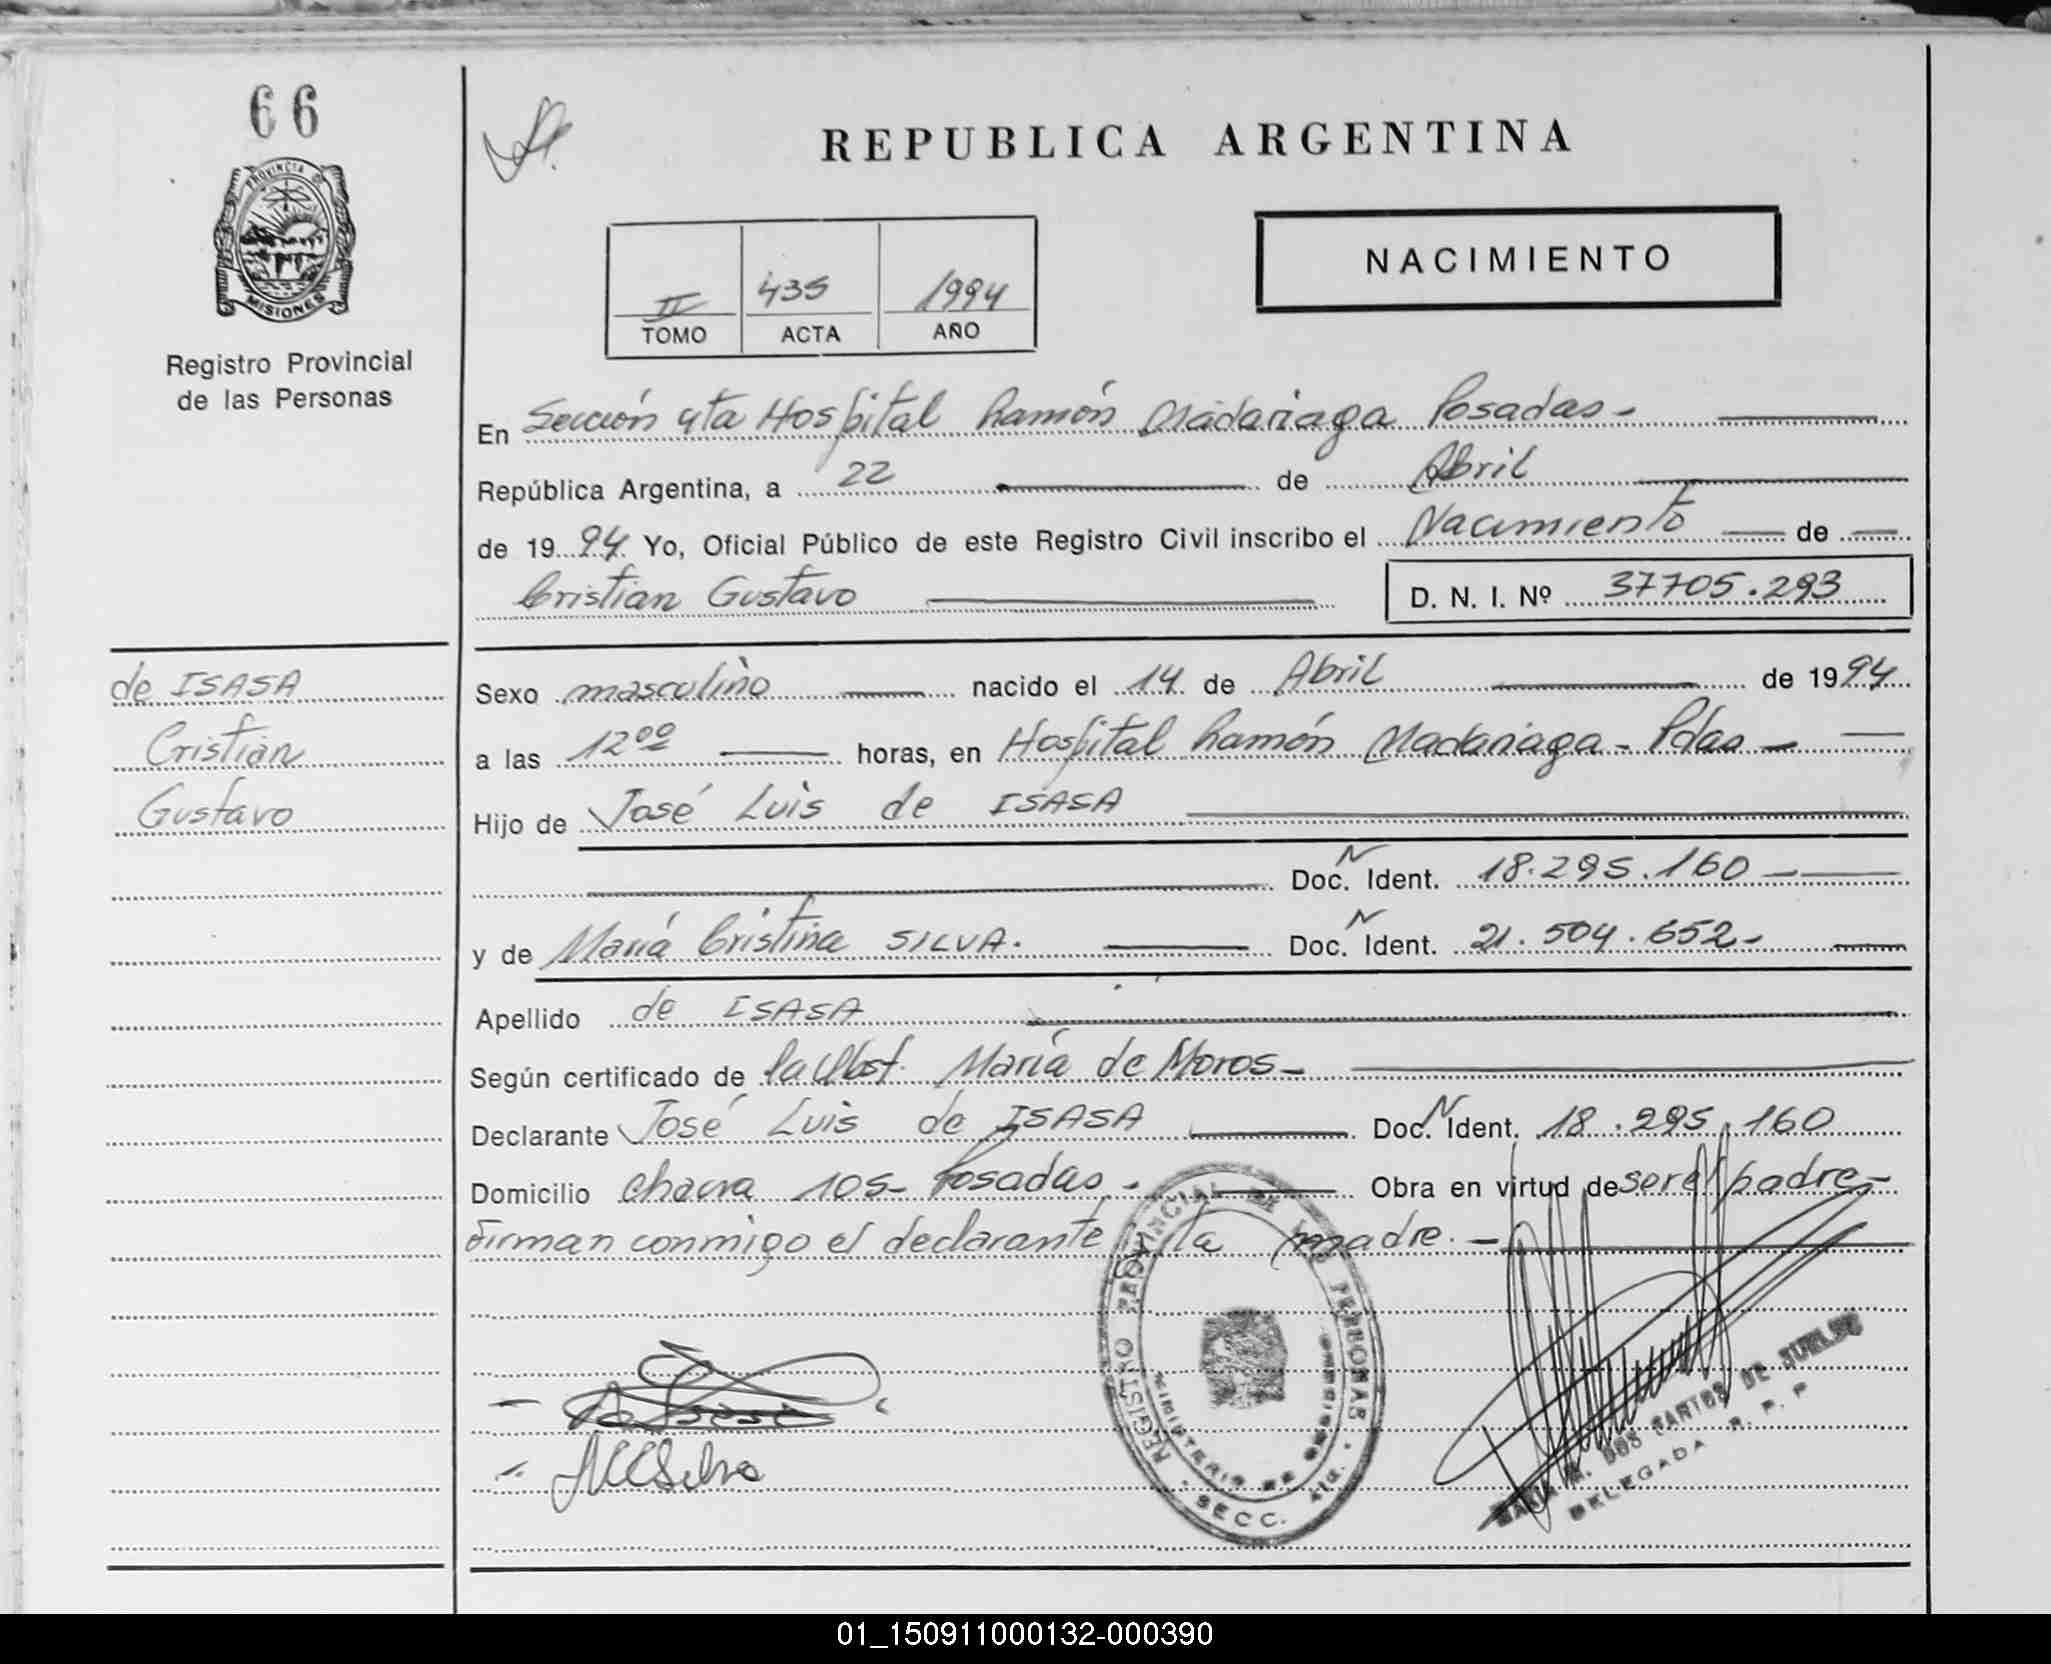 66
PROVINCIA D
MISIONES
Registro Provincial
de las Personas
REPUBLICA ARGENTINA
NACIMIENTO
II 435 1994
TOMO ACTA AÑO
En Sección 4ta Hospital Ramón Madariaga Posadas-
República Argentina, a 22 de Abril
de 1994 Yo, Oficial Público de este Registro Civil inscribo el Nacimiento de
Cristian Gustavo D. N. I. Nº 37705.293
de ISASA
Cristian
Gustavo
Sexo masculino nacido el 14 de Abril de 1994
a las 12⁰⁰ horas, en Hospital Ramón Madariaga - Pdas -
Hijo de José Luis de ISASA
Doc. N Ident. 18.295.160
y de María Cristina SILVA. Doc. N Ident. 21.504.652-
Apellido de ISASA
Según certificado de la Obst. María de Moros-
Declarante José Luis de ISASA Doc. N Ident. 18.295.160
Domicilio chacra 105- Posadas. Obra en virtud de ser el padre-
Firman conmigo el declarante y la madre.-
REGISTRO PROVINCIAL DE LAS PERSONAS
MINISTERIO DE
SECC. 4ta.
MCSilva
M. DOS SANTOS DE
DELEGADA R. P. P
01_150911000132-000390